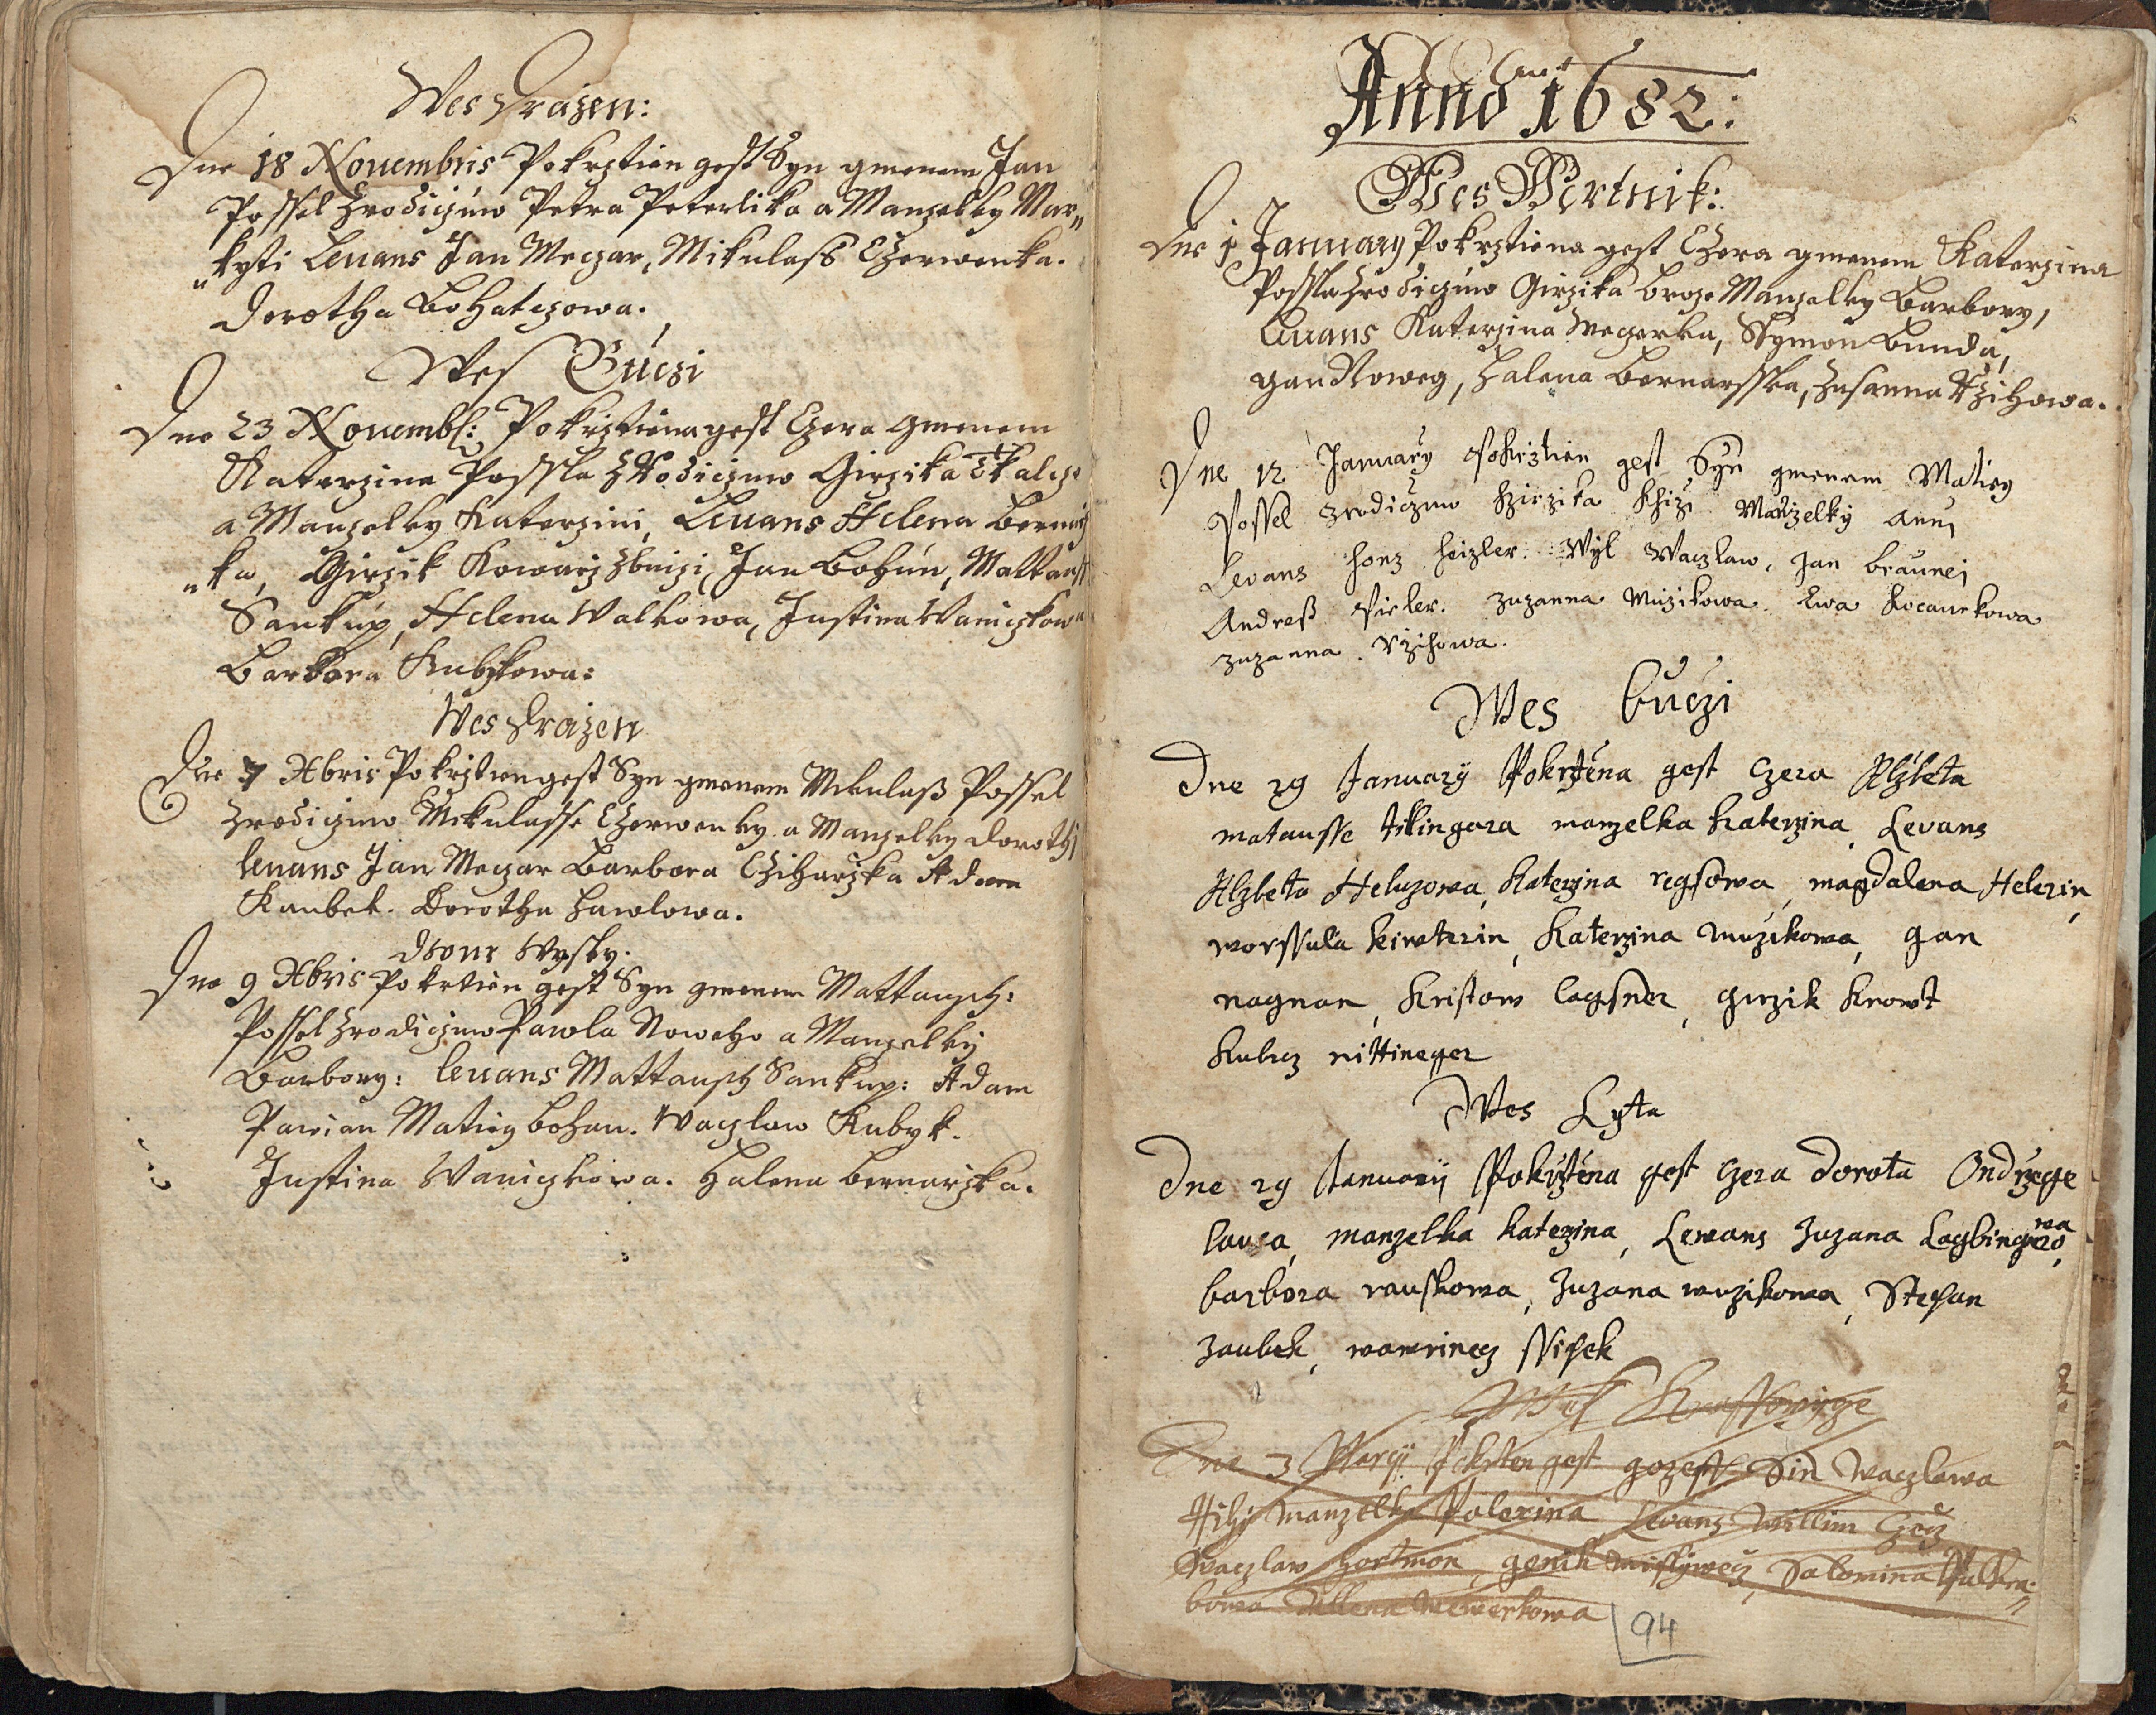 Wes Drazen:
Dne 18 Nouembris Pokrztien gest Syn gmenem Jan
Possel zrodiczuw Petra Peterlika a Manzelky Mar„
„kyti Leuans Jan Meczar, Mikulass Czerwenka.
Dorotha Bohatczowa.
Wes Buczi
Dne 23 Nouembr: Pokrztiena gest Czera gmenem
Katerzina Possla z Rodiczuw Girzika Tkalcze
a Manzelky Katerzini, Leuans Helena Bernarz
„ka, Girzik Kowarz Jan Bohun, Mattausch
Sankup, Helena Walkowa, Justina Waniczkowa
Barbora Kubykowa:
Wes Drazen
Dne 7 Xbris Pokrztien gest Syn gmenem Mikulass Possel
zrodiczuw Mikulasse Czerwenky a Manzelky Dorothi
leuans Jan Meczar Barbora Cziharzka Adam
Kaubek. Dorotha Hawlowa.
Dwur Wysky.
Dne 9 Xbris Pokrtien gest Syn gmenem Mattausch:
Possel zrodiczuw Pawla Noweho a Manzelky
Barbory: leuans Mattausch Sankup: Adam
Pawian Matieg Bohau. Waczlaw Kubyk.
Justina Waniczkowa. Halena Bernarzka.
Anno 1682:
Wes Wertnik:
Dne 1 January Pokrztiena gest Czera gmenem Katerzina
Possla zrodiczuw Girzika Broze Manzelky Barbory,
Leuans Katerzina Meczerka, Symon Bunda,
Jan Noweg, Halena Bernarsska, Zusanna Rzihowa.
Dne 12 January Pokrztien gest Syn gmenem Matieg
Possel zrodiczuw Girzika Manzelky Anni
Levans honz heizler Wyl Waczlaw, Jan braunei
Andress Pieler. Zuzanna Muzikowa Ewa Kocaurkowa
Zuzanna Rzihowa.
Wes Buczi
Dne 29 January Pokrztena gest czera Alzbeta
matausse manzelka katerzina, Levans
Alzbeta Heluzowa, katerzina regsowa, magdalena Helerin,
worssula kirnterin, katerzina muzikowa, gan
nagman, kristow lagsner, girzik knowt
kubicz nittineger
Wes Lyta
Dne 29 January Pokrztena gest czera dorota Ondrzege
lauca, manzelka katerzina, Lewans Zuzana Lagbingrowa,
barbora rauskowa, Zuzana muzikowa, Stepan
Zaubek, wawrinecz
Wes
Dne 3 Marcy Pokrten gest gozeff Sin Waczlawa
manzelka Polexina Levans Willim
Waczlaw hortmon, genik Salomina
bowa Wewerkowa
94